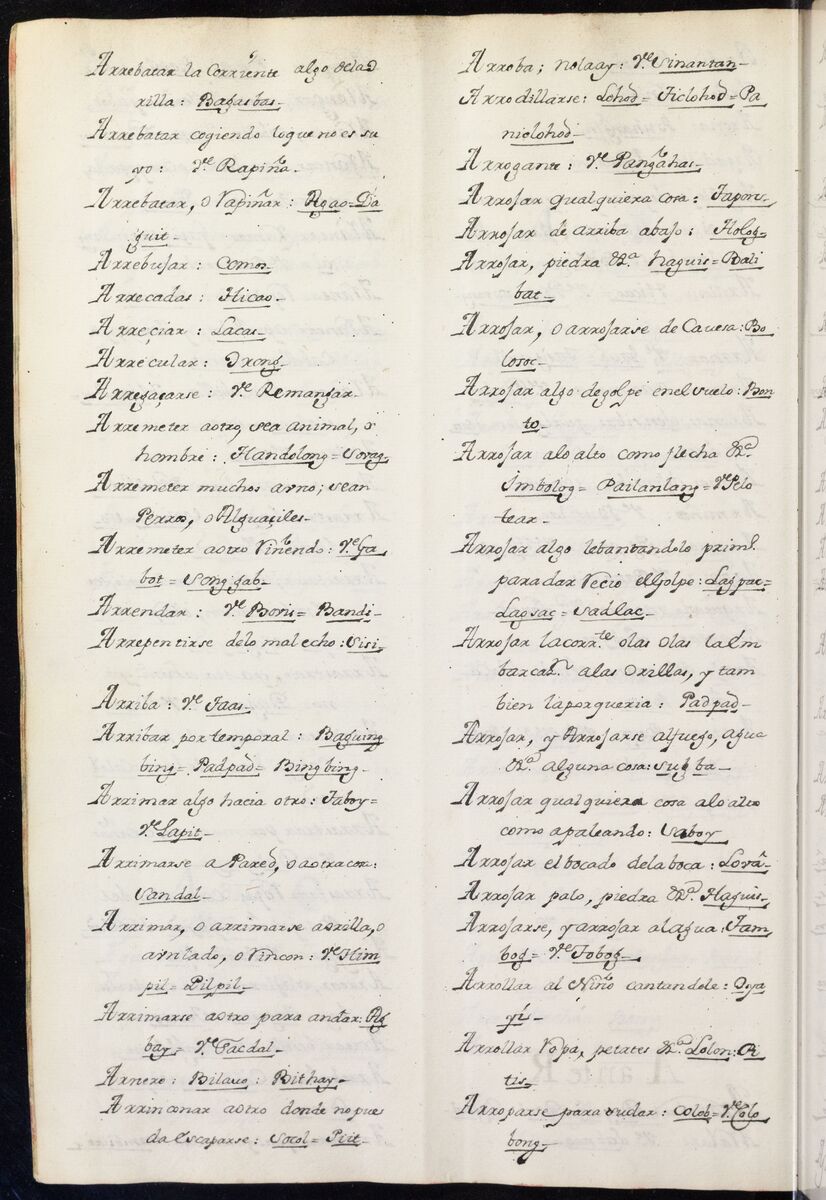 Arrebatar la Corriente algo dela O
rilla: Bagasbas_
Arrebatar cogiendo loque no es su
yo: Ve Rapiña.
Arrebatar, o rapiñar: Agao=Da
guit_
Arrebujar: Comos_
Arrecadas: Hicao_
Arreçiar: Lacas_
Arrecular: Orong_
Arregaçarse: Ve Remangar_
Arremeter aotro, sea animal, o
hombre: Handolong= Sorag_
Arremeter muchos auno; sean
Perros, o Alguaçiles_
Arremeter aotro riñendo: Ve Ga
bot= Songgab_
Arrendar: Ve Boris= Bandi_
Arrepentirse delo mal echo: Sisi_
Arriba: Ve Taas_
Arribar por temporal: Baguing
bing= Padpad= Bingbing_
Arrimar algo hacia otro: Taboy=
Ve Lapit_
Arrimarse a Pared, o aotra cosa:
Sandal_
Arrimar, o arrimarse aorilla, o
aun lado, o rincon: Ve Him
pil= Pilpil_
Arrimarse aotro para andar: Ag
bay= Ve Tacdal_
Arnero: Bilauo: Bithay_
Arrinconar aotro donde no pue
da escaparse: Socol= Piit_
Arroba; nola ay: Ve Sinantan_
Arrodillarse: Lohod= Ticlohod= Pa
niclohod_
Arrogante: Ve Pangahas_
Arrojar qualquiera cosa: Tapon_
Arrojar de arriba abajo: Holog_
Arrojar, piedra &a. haguis= Bali
bat_
Arrojar, o arrojarse de Cavesa: Bo
losoc_
Arrojar algo degolpe enel suelo: Bon
to_
Arrojar alo alto como flecha &a.
Simbolog= Pailanlang= Ve Pelo
tear_
Arrojar algo lebantandolo prim.
para dar recio el golpe: Lagpac=
Lagsac= Sadlac_
Arrojar la corr.te olas Olas la em
barcan. alas Orillas, y tam
bien la porqueria: Padpad_
Arrojar, y Arrojarse alfuego, agua
&a. alguna cosa: Sugba_
Arrojar qualquiera cosa alo alto
como apaleando: Saboy_
Arrojar el bocado dela boca: Lova_
Arrojar palo, piedra &a. Haguis_
Arrojarse, y arrojar al agua: Tam
bog= Ve Tobog_
Arrollar al Niño cantandole: Oya
yi_
Arrollar ropa, petates &a. Lolon: Pi
tis_
Arroparse para sudar: Colob= Ve Colo
bong_